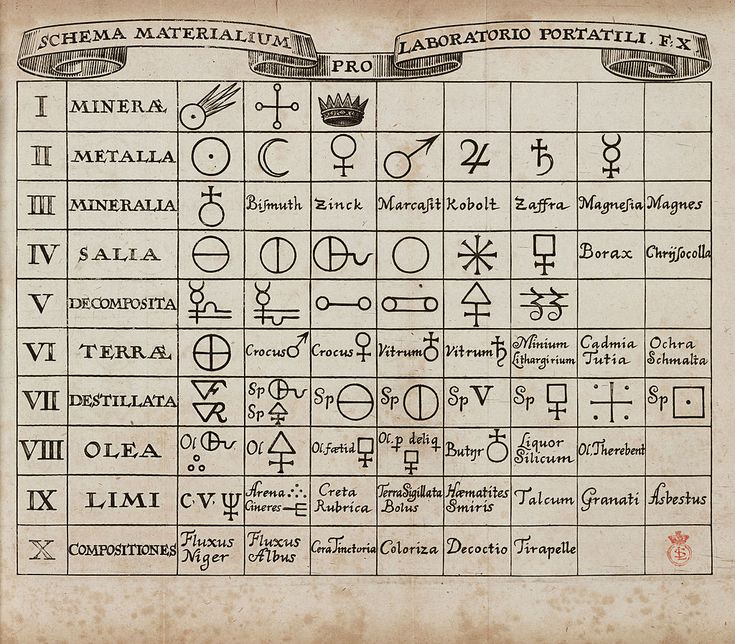 SCHEMA MATERIALIUM PRO LABORATORIO PORTATILI. F. X
I MINERÆ
II METALLA
III MINERALIA Bismuth Zinck Marcasit Kobolt Zaffra Magnesia Magnes
IV SALIA Borax Chrijsocolla
V DECOMPOSITA
VI TERRÆ Crocus Crocus Vitrum Vitrum Minium Lithargirium Cadmia Tutia Ochra Schmalta
VII DESTILLATA Sp Sp Sp Sp Sp Sp Sp
VIII OLEA Ol Ol Ol. fætid Ol. p deliq Butyr Liquor Silicum Ol. Therebent
IX LIMI C.V. Arena Cineres Creta Rubrica Terra Sigillata Bolus Hæmatites Smiris Talcum Granati Asbestus
X COMPOSITIONES Fluxus Niger Fluxus Albus Cera Tinctoria Coloriza Decoctio Tirapelle